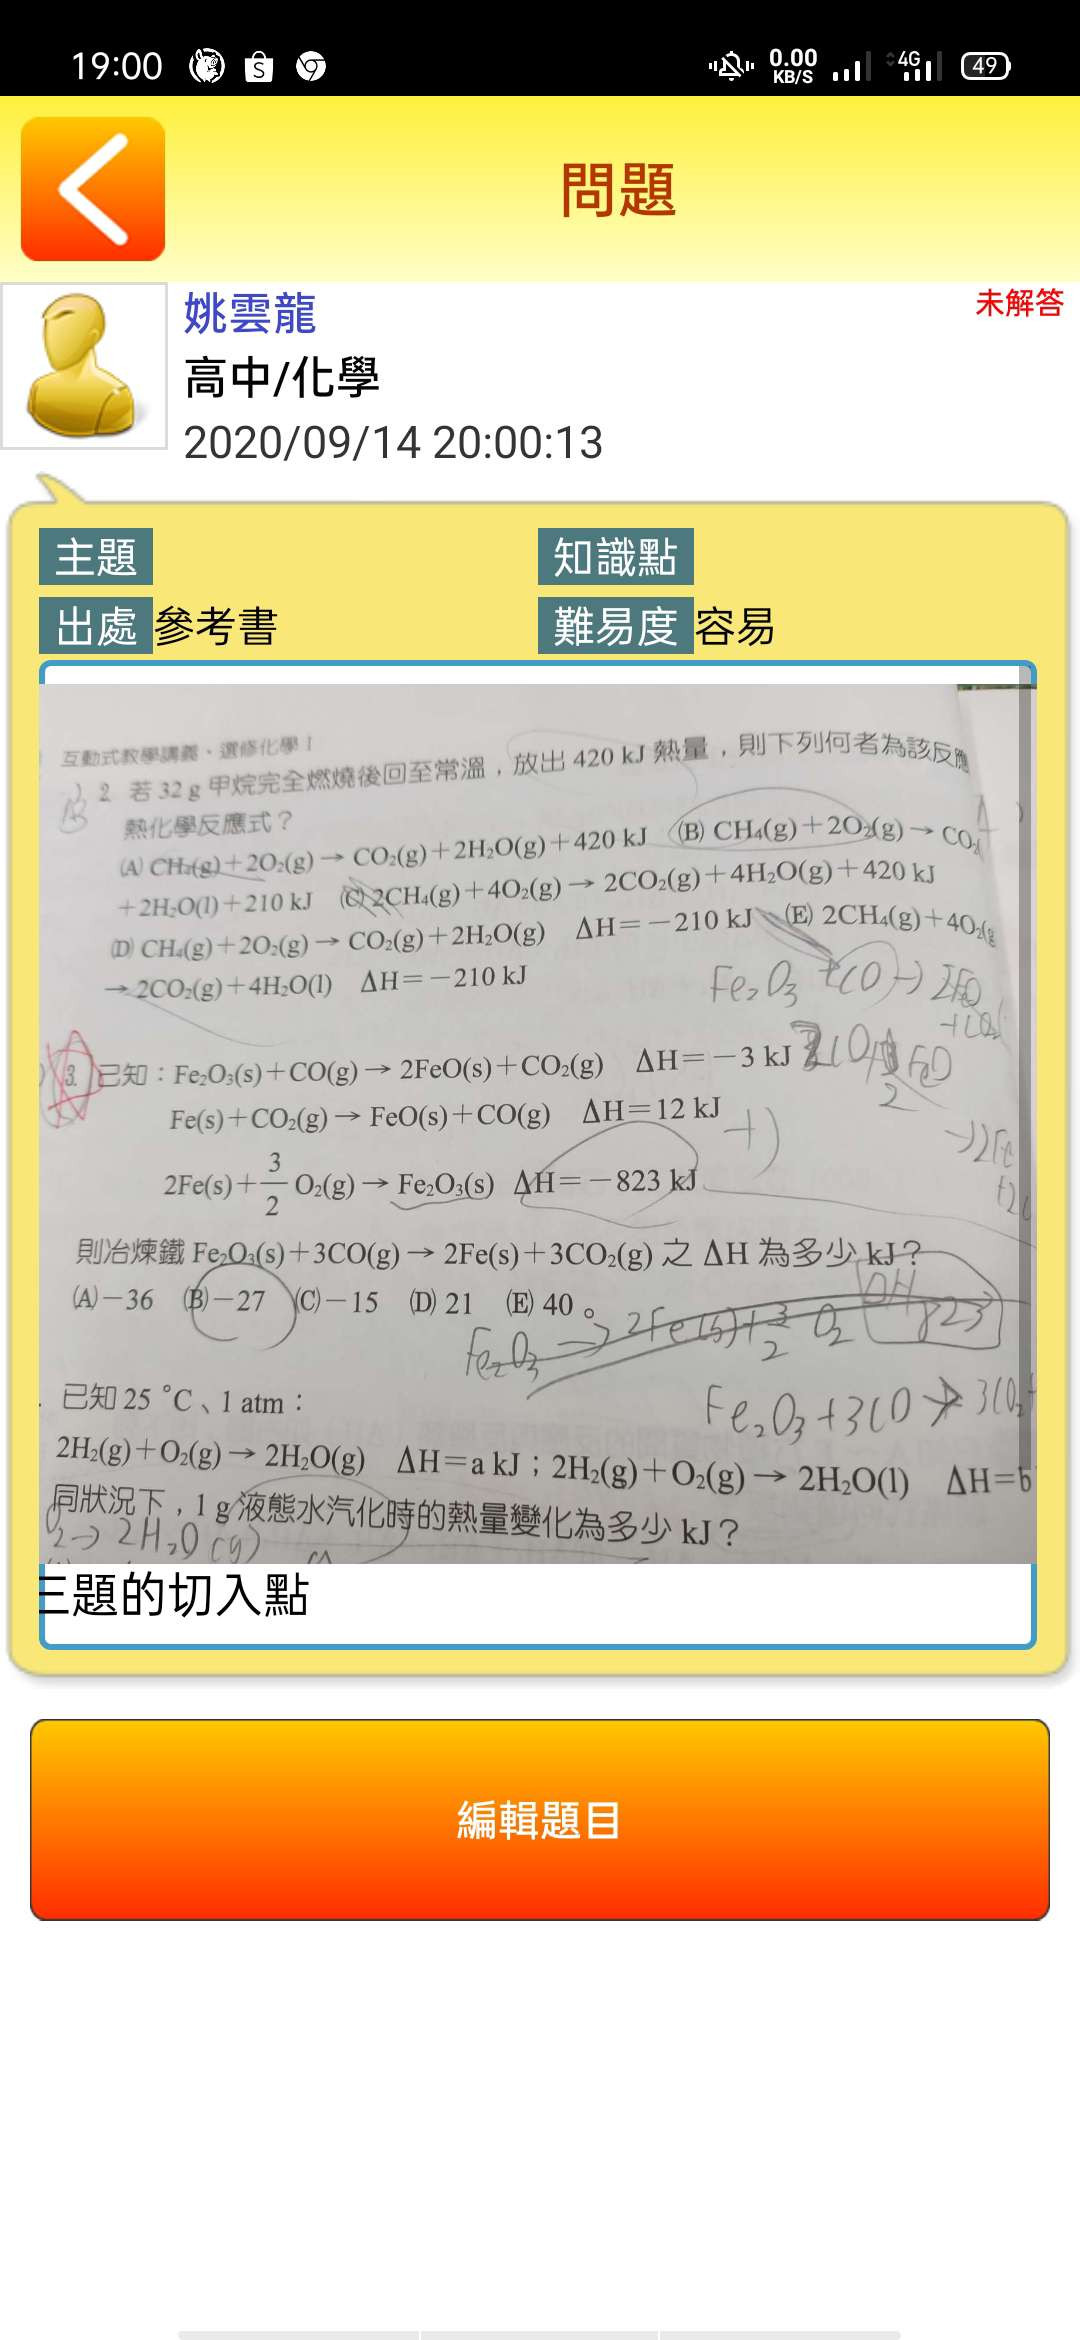 19:00
0.00
KB/S
4G
49
問題
姚雲龍
未解答
高中/化學
2020/09/14 20:00:13
主題
知識點
出處 參考書
難易度 容易
互動式教學講義、選修化學 I
2. 若 32 g 甲烷完全燃燒後回至常溫，放出 420 kJ 熱量，則下列何者為該反應
熱化學反應式？
(A) CH₄(g)＋2O₂(g)→ CO₂(g)＋2H₂O(g)＋420 kJ (B) CH₄(g)＋2O₂(g)→ CO₂(
＋2H₂O(l)＋210 kJ (C) 2CH₄(g)＋4O₂(g)→ 2CO₂(g)＋4H₂O(g)＋420 kJ
(D) CH₄(g)＋2O₂(g)→ CO₂(g)＋2H₂O(g) ΔH＝－210 kJ (E) 2CH₄(g)＋4O₂(g
→ 2CO₂(g)＋4H₂O(l) ΔH＝－210 kJ
Fe₂O₃ + CO → 2FeO
+CO₂
3. 已知：Fe₂O₃(s)＋CO(g)→ 2FeO(s)＋CO₂(g) ΔH＝－3 kJ
Fe(s)＋CO₂(g)→ FeO(s)＋CO(g) ΔH＝12 kJ
+)
→2Fe
2Fe(s)＋3/2 O₂(g)→ Fe₂O₃(s) ΔH＝－823 kJ
則冶煉鐵 Fe₂O₃(s)＋3CO(g)→ 2Fe(s)＋3CO₂(g) 之 ΔH 為多少 kJ？
(A)－36 (B)－27 (C)－15 (D) 21 (E) 40 。
ΔH
Fe₂O₃ → 2Fe(s)+3/2 O₂ 823
已知 25 °C、1 atm：
Fe₂O₃+3CO → 3CO₂+
2H₂(g)＋O₂(g)→ 2H₂O(g) ΔH＝a kJ；2H₂(g)＋O₂(g)→ 2H₂O(l) ΔH＝b
同狀況下，1 g 液態水汽化時的熱量變化為多少 kJ？
O₂→ 2H₂O (g)
三題的切入點
編輯題目